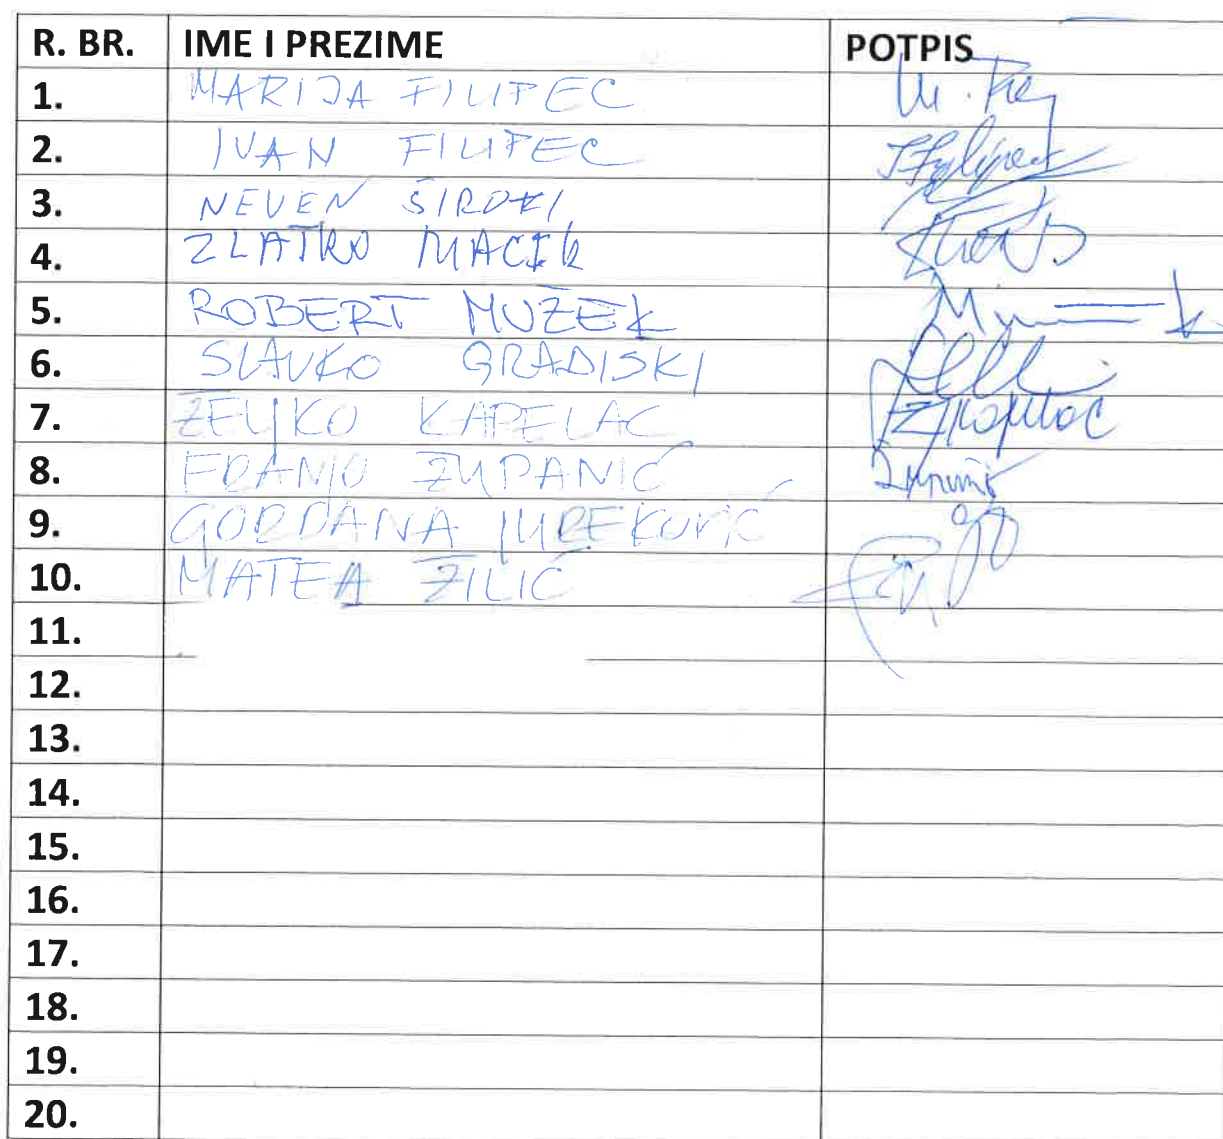 R. BR. IME I PREZIME POTPIS
1. MARIJA FILIPEC
2. IVAN FILIPEC
3. NEVEN ŠIROKI
4. ZLATKO MACEK
5. ROBERT MUŽEK
6. SLAVKO GRADISKI
7. ŽELJKO KAPELAC
8. FRANJO ŽUPANIĆ
9. GORDANA JUREKOVIĆ
10. MATEA ŽILIĆ
11.
12.
13.
14.
15.
16.
17.
18.
19.
20.